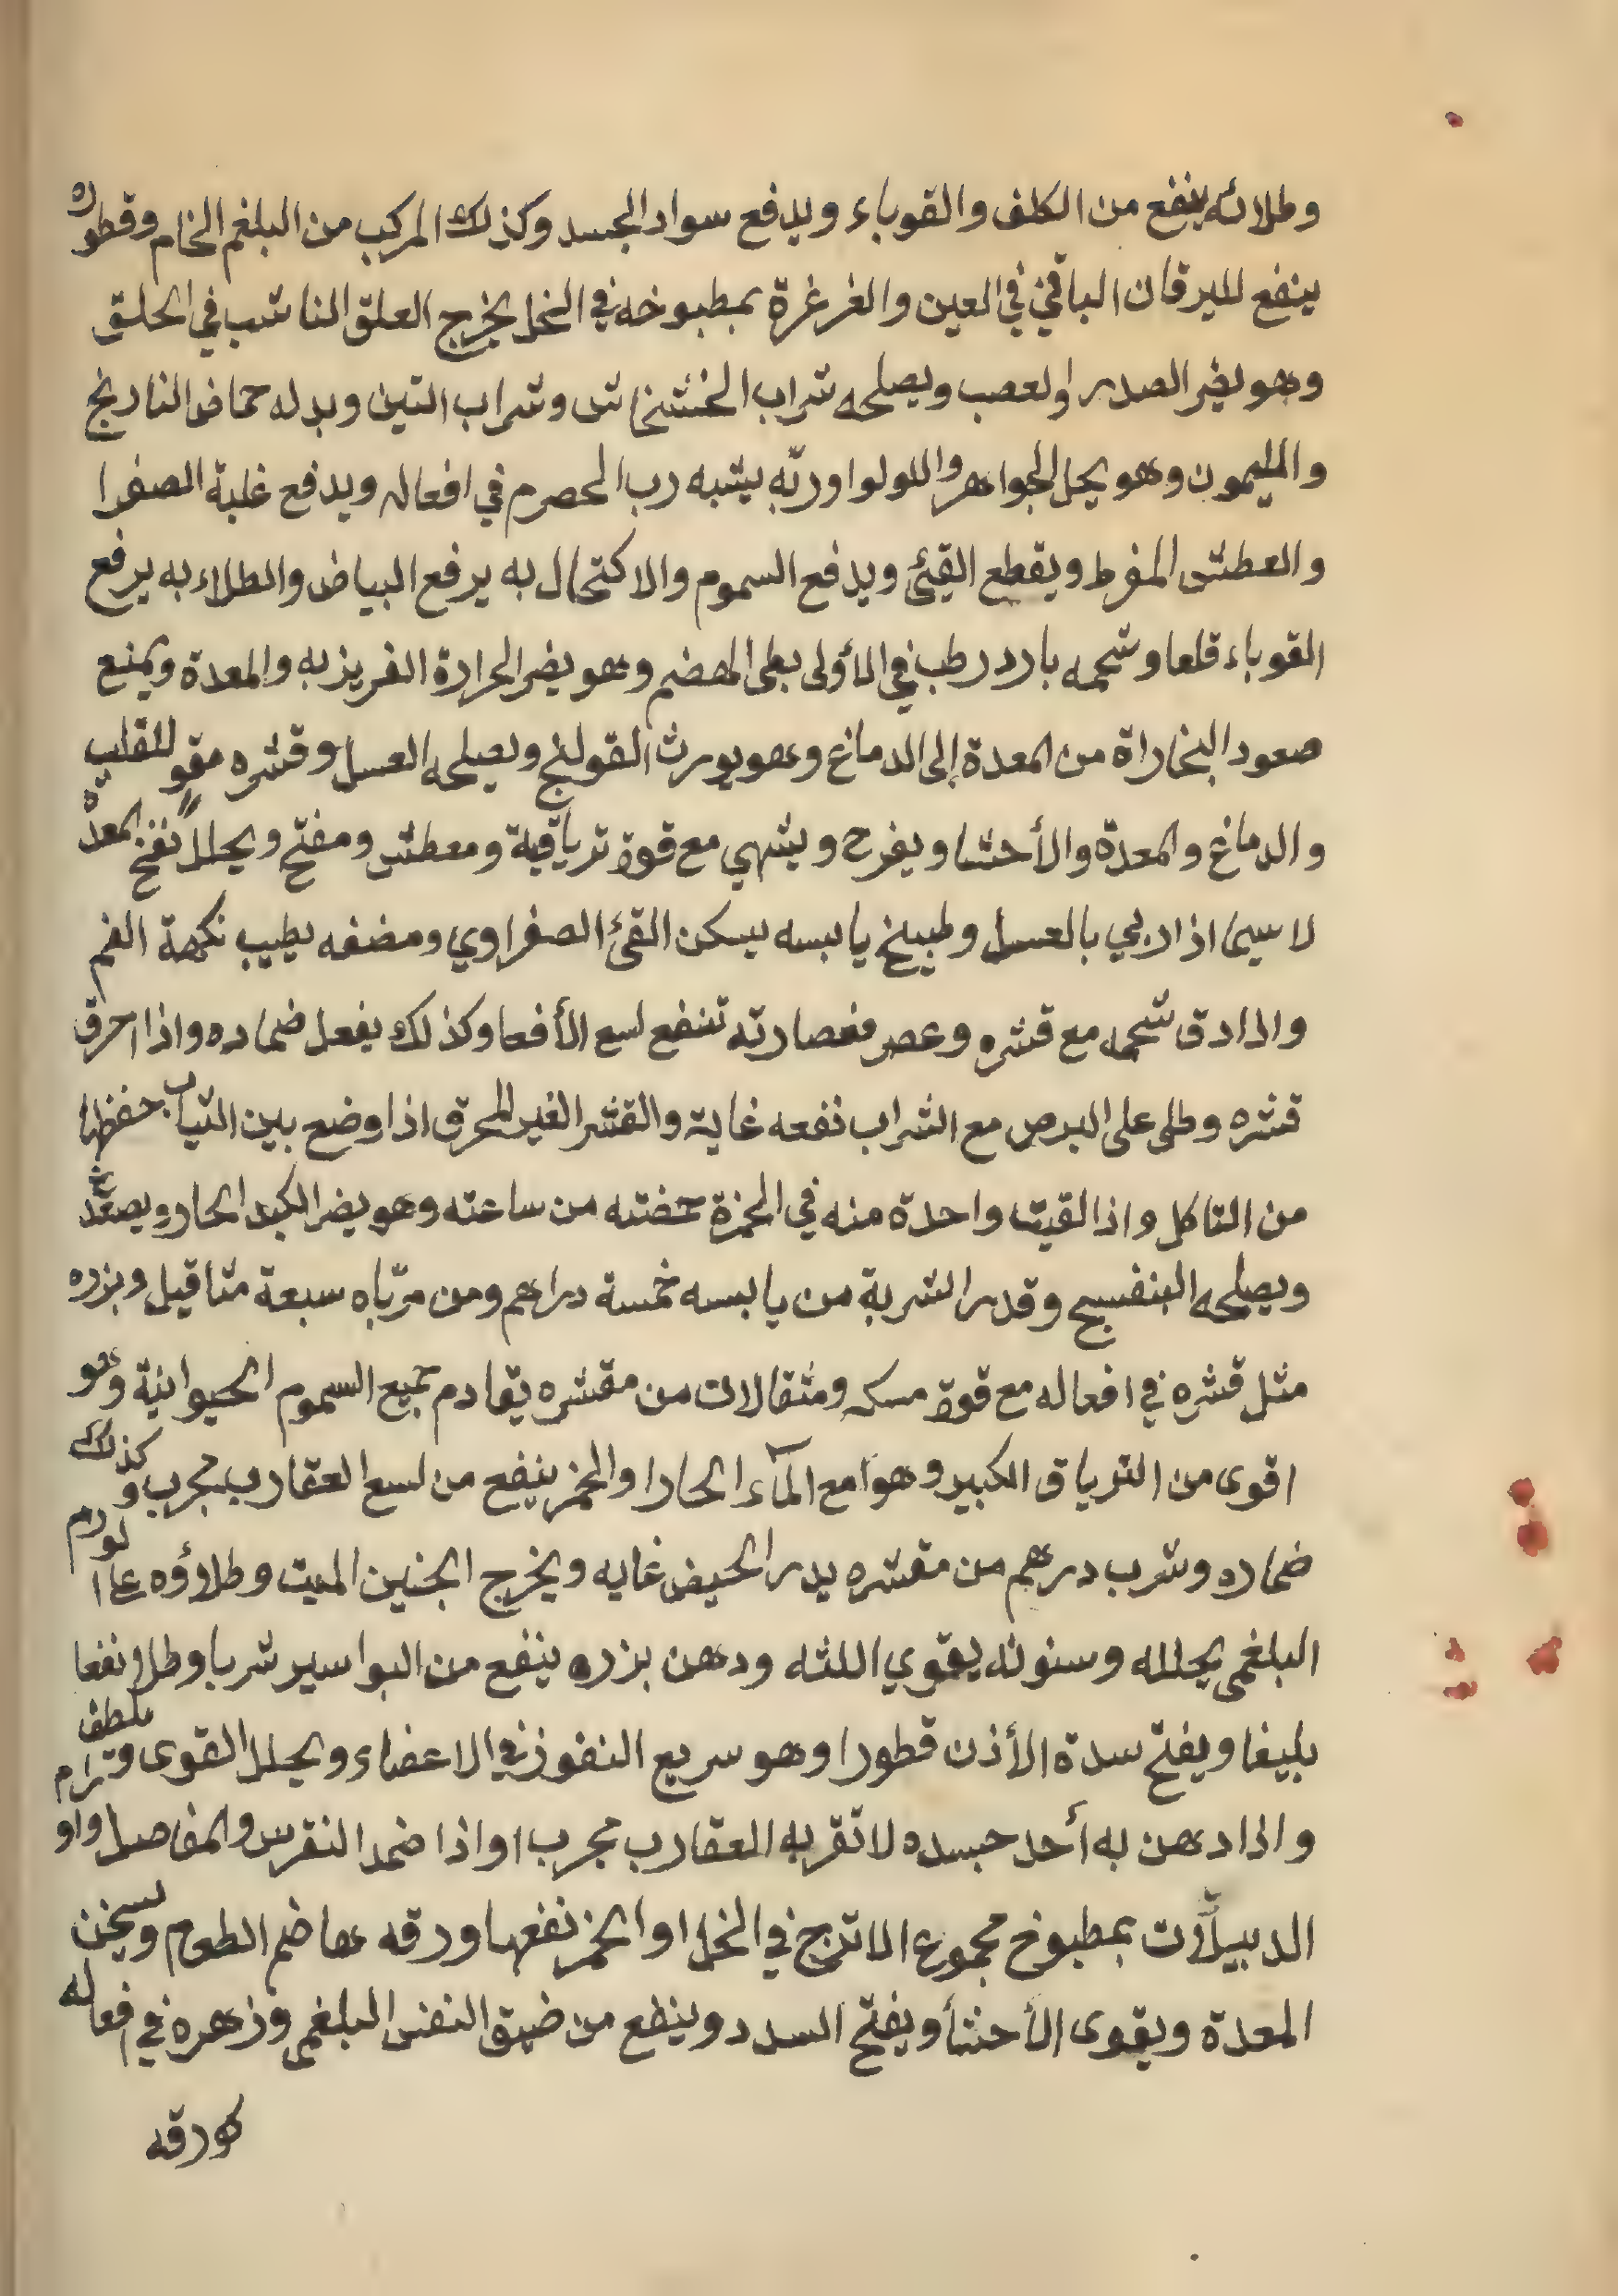 وطلائه ينفع من الكلف والقوباء ويدفع سواد الجسد وكذلك المركب من البلغم الخام وقطوره
ينفع لليرقان الباقي في العين والغرغرة بمطبوخه في الخل يخرج العلق الناشب في الحلق
وهو يضر الصدر والعصب ويصلحه شراب الخشخاش وشراب التين وبدله حماض النارنج
والليمون وهو يحل الجواهر واللولوا وربّه يشبه رب الحصرم في افعاله ويدفع غلبة الصفرا
والعطش المفرط ويقطع القيئ ويدفع السموم والاكتحال به يرفع البياض والطلاء به يرفع
القوباء قلعا وشحمه بارد رطب في الأولى بطى الهضم وهو يضر الحرارة الغريزيه والمعدة ويمنع
صعود البخاراة من المعدة إلى الدماغ وهو يورث القولنج ويصلحه العسل وقشره مقوٍ للقلب
والدماغ والمعدة والأحشا ويفرح ويشهي مع قوة ترياقية ومعطش ومفتح ويحلل نفخ المعدة
لا سيما اذا ربي بالعسل وطبيخ يابسه يسكن القئ الصفراوي ومضغه يطيب نكهة الفم
واذا دق شحمه مع قشره وعصر فعصارته تنفع لسع الأفعا وكذلك يفعل ضماده واذا احرق
قشره وطلى على البرص مع الشراب نفعه غاية والقشر الغير المحرق اذا وضع بين الثياب حفظها
من التاكل واذا لقيت واحدة منه في الخمرة حمضته من ساعته وهو يضر الكبد الحار ويصدّع
ويصلحه البنفسج وقدر الشربة من يابسه خمسة دراهم ومن مربّاه سبعة مثاقيل وبزره
مثل قشره في افعاله مع قوة مسكه ومثقالان من مقشره يقادم جميع السموم الحيوانية وهو
اقوى من الترياق الكبير وهو امع المآء الحار او الخمر ينفع من لسع العقارب مجرب وكذلك
ضماده وشرب درهم من مقشره يدر الحيض غايه ويخرج الجنين الميت وطلاؤه على الورم
البلغمى يحلله وسنونه يقوي اللثه ودهن بزره ينفع من البواسير شربا وطلا نفعا
بليغا ويفتح سدة الأذن قطورا وهو سريع النفوذ في الاعضاء ويحلل القوى وتلطف
واذا دهن به أحد جسده لا تقربه العقارب مجرب واذا ضمد النقرس والمفاصل واورام
الدبيلآت بمطبوخ مجموع الاترج في الخل او الخمر نفعها ورقه هاضم الطعام ويسخن
المعدة ويقوى الأحشأ ويفتح السدد وينفع من ضيق النفس البلغمي وزهره في افعاله
كورقه